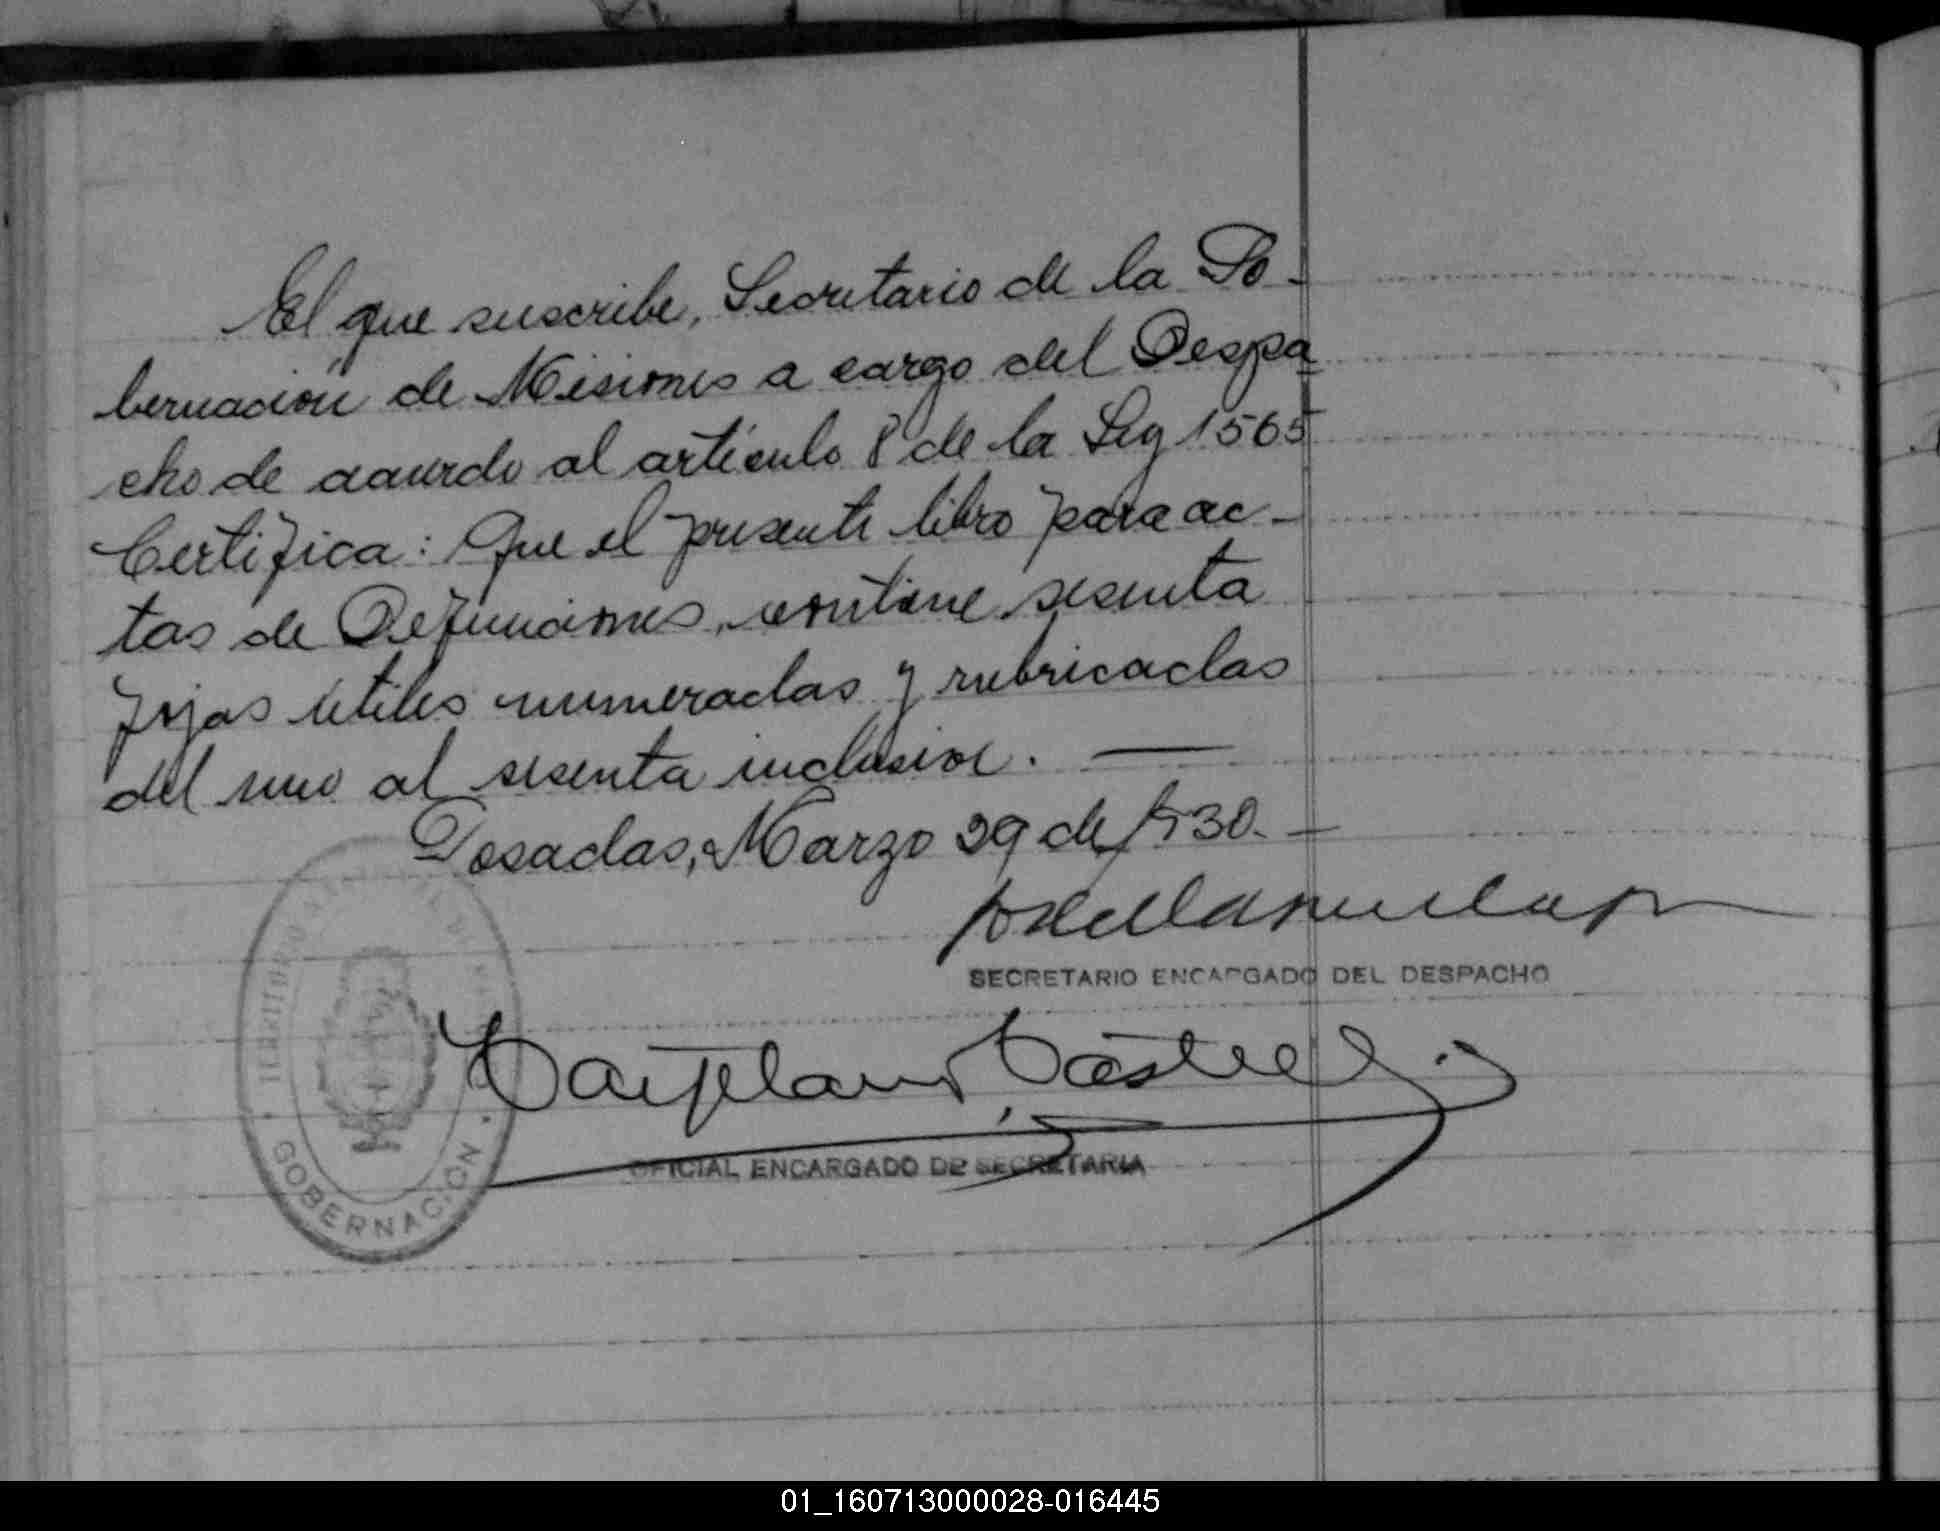 El que suscribe, Secretario de la Go-
bernación de Misiones a cargo del Despa
cho de acuerdo al artículo 8 de la Ley 1565
Certifica: Que el presente libro para ac-
tas de Defunciones, contiene sesenta
fojas útiles numeradas y rubricadas
del uno al sesenta inclusive. —
Posadas, Marzo 29 de 1930. —
SECRETARIO ENCARGADO DEL DESPACHO
OFICIAL ENCARGADO DE SECRETARIA
TERRITORIO
GOBERNACIÓN
01_160713000028-016445